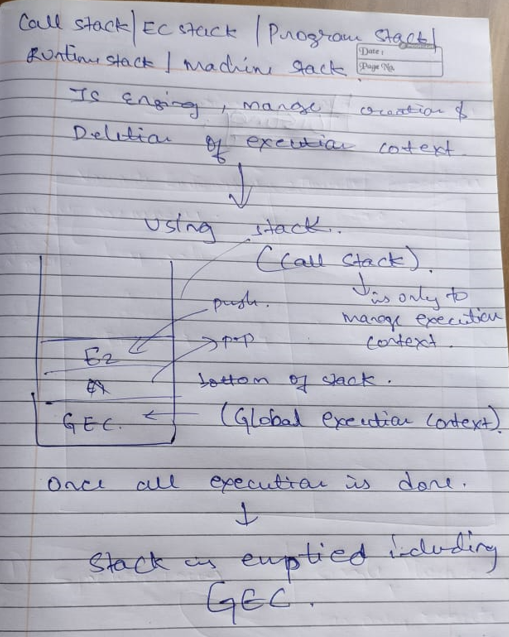 Call stack | EC stack | Program stack |
Runtime stack | Machine stack.
Date:
Page No.
JS engine, manage creation &
Deletion of execution context
using stack.
(Call stack).
is only to
manage execution
context.
push.
pop
E2
E1
bottom of stack.
GEC.
(Global execution context).
Once all execution is done.
Stack is emptied including
GEC.